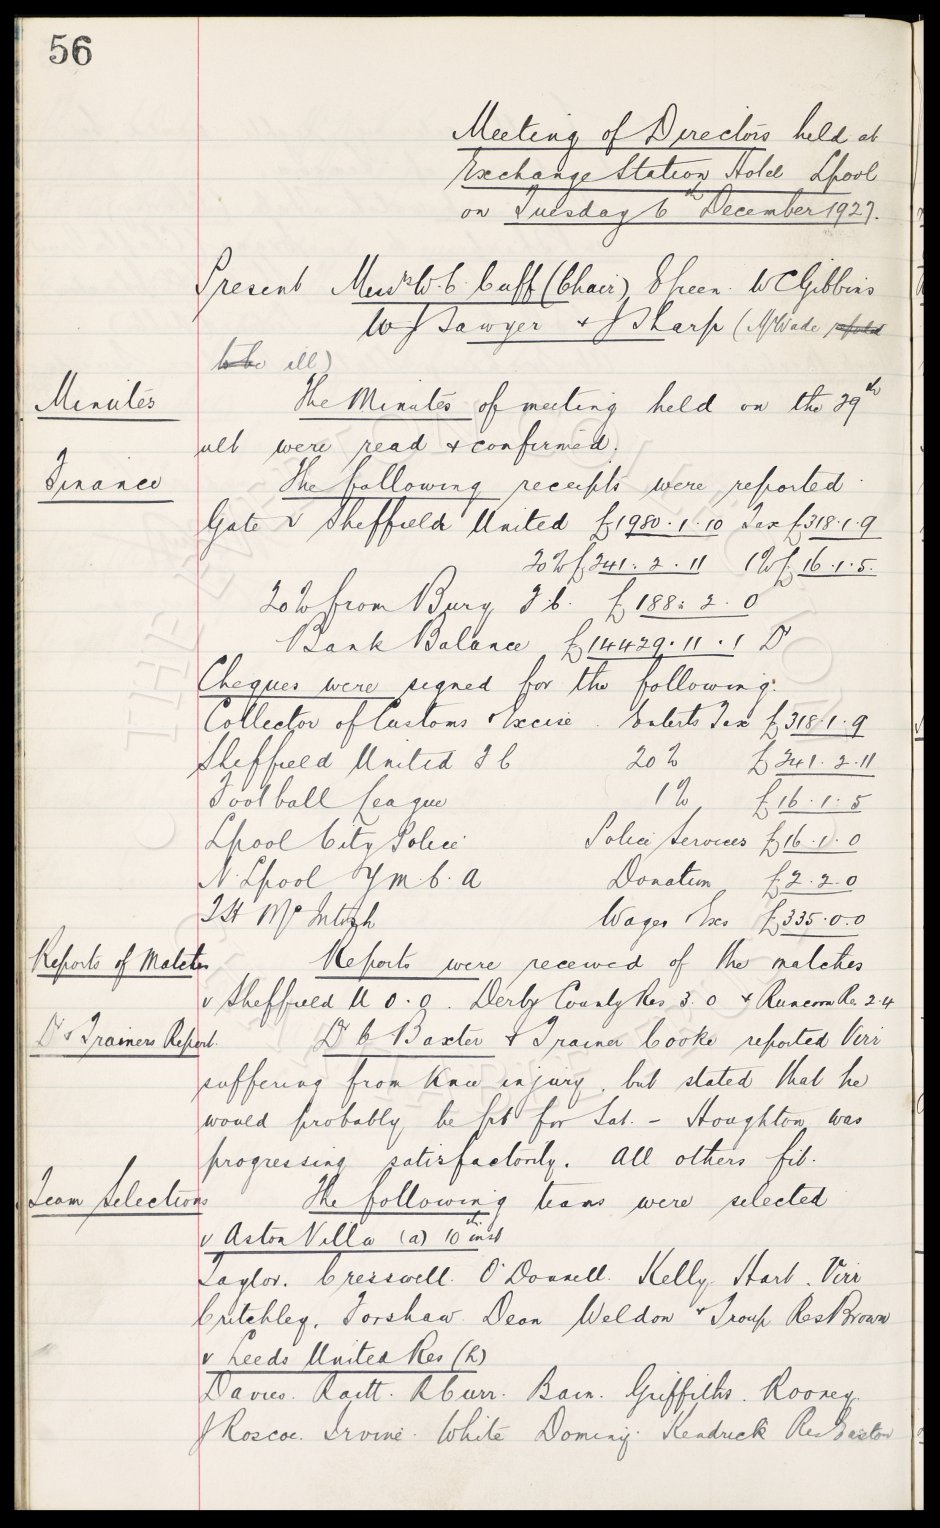 56
Meeting of Directors held at
Exchange Station Hotel Lpool
on Tuesday 6th December 1927.
Present Messrs W. C. Cuff (Chair) E Green. W C Gibbins
W J Sawyer & J Sharp (A Wade
to be ill)
Minutes
The Minutes of meeting held on the 29th
ult were read & confirmed.
Finance
The following receipts were reported
Gate v Sheffield United £1980.1.10 Tax £318.1.9
20% £241.2.11 1% £16.1.5.
20% from Bury F.C. £188.2.0
Bank Balance £14429.11.1 Dr
Cheques were signed for the following.
Collector of Customs & Excise. Enterts Tax £318.1.9
Sheffield United F C 20% £241.2.11
Football League 1% £16.1.5
Lpool City Police Police Services £16.1.0
N. Lpool Y.M.C.A Donation £2.2.0
T H McIntosh Wages & Exs £335.0.0
Reports of Matches
Reports were received of the matches
v Sheffield U 0.0. Derby County Res 3.0 & Runcorn Res 2.4
Dr & Trainers Report.
Dr C Baxter & Trainer Cooke reported Virr
suffering from Knee injury, but stated that he
would probably be fit for Sat. - Houghton was
progressing satisfactorily. All others fit.
Team Selections
The following teams were selected
v Aston Villa (a) 10th inst
Taylor. Cresswell. O'Donnell. Kelly. Hart. Virr
Critchley. Forshaw. Dean Weldon & Troup Res Brown
v Leeds United Res (h)
Davies. Raitt. R Curr. Bain. Griffiths. Rooney.
J Roscoe. Irvine. White Dominy. Kendrick Res Easton